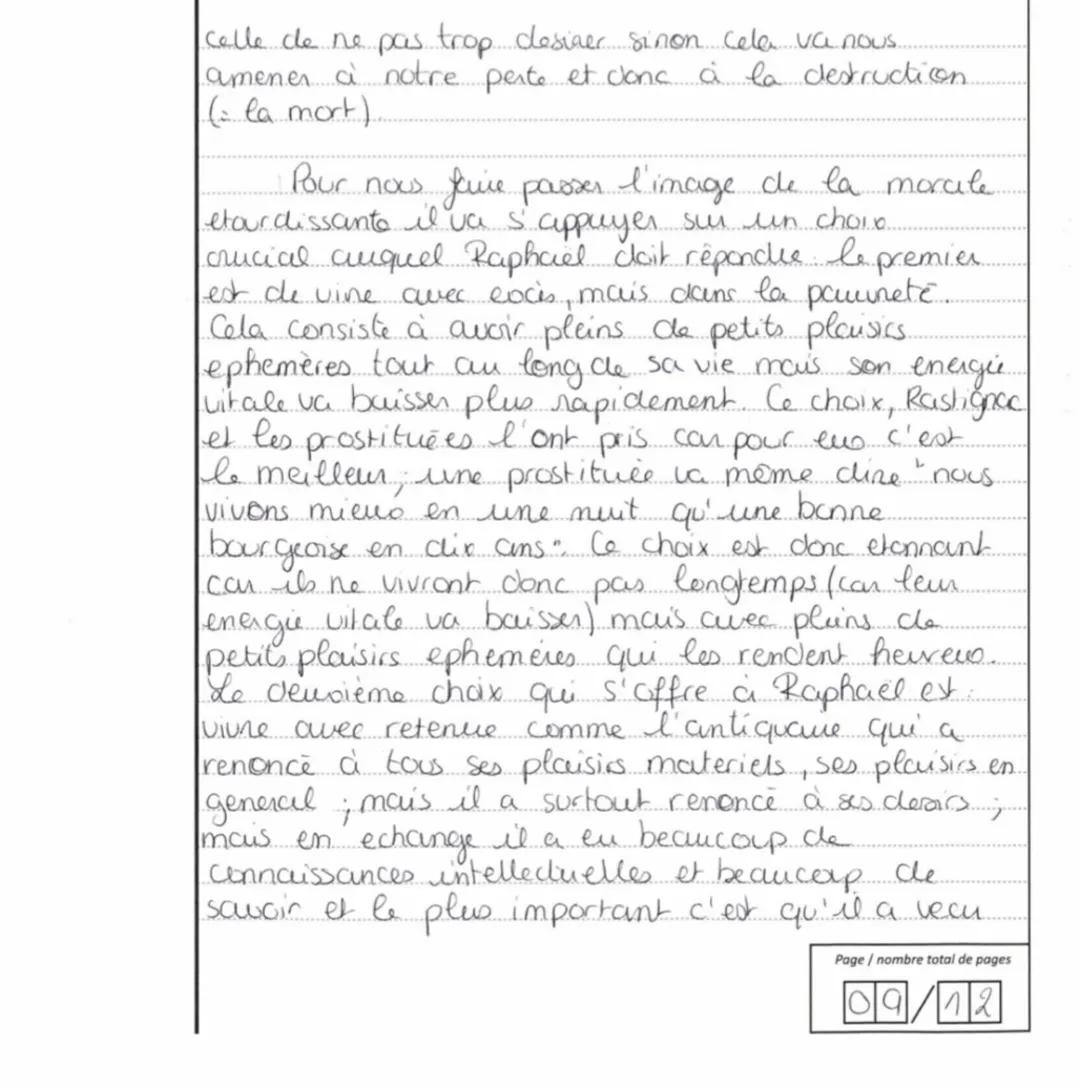 celle de ne pas trop desirer sinon cela va nous
amener à notre perte et donc à la destruction
(= la mort).
Pour nous faire passer l'image de la morale
etourdissante il va s'appuyer sur un choix
crucial auquel Raphaël doit répondre : le premier
est de vivre avec excès, mais dans la pauvreté.
Cela consiste à avoir pleins de petits plaisirs
ephemères tout au long de sa vie mais son energie
vitale va baisser plus rapidement. Ce choix, Rastignac
et les prostituées l'ont pris car pour eux c'est
le meilleur ; une prostituée va même dire "nous
vivons mieux en une nuit qu'une bonne
bourgeoise en dix ans". Ce choix est donc etonnant
car ils ne vivront donc pas longtemps (car leur
energie vitale va baisser) mais avec pleins de
petits plaisirs ephemères qui les rendent heureux.
Le deuxième choix qui s'offre à Raphaël est :
vivre avec retenue comme l'antiquaire qui a
renoncé à tous ses plaisirs materiels, ses plaisirs en
general ; mais il a surtout renoncé à ses desirs ;
mais en echange il a eu beaucoup de
connaissances intellectuelles et beaucoup de
savoir et le plus important c'est qu'il a vecu
Page / nombre total de pages
09/12